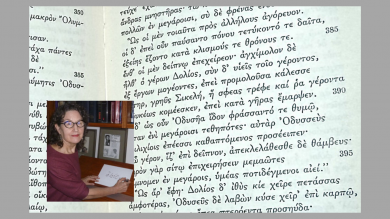 μακρὸν Ὄλυμ-
τάχα πάντες
δὲ
ἄνδρας μνηστῆρας
πολλῶν ἐν μεγάροισι, σὺ δὲ φρένας
Ὣς οἱ μὲν τοιαῦτα πρὸς ἀλλήλους ἀγόρευον.
οἱ δ' ἐπεὶ οὖν παύσαντο πόνου τετύκοντό τε δαῖτα,
ἑξείης ἕζοντο κατὰ κλισμούς τε θρόνους τε. 385
ἔνθ' οἱ μὲν δείπνῳ ἐπεχείρεον· ἀγχίμολον δὲ
ἦλθ' ὁ γέρων Δολίος, σὺν δ' υἱεῖς τοῖο γέροντος,
ἐξ ἔργων μογέοντες, ἐπεὶ προμολοῦσα κάλεσσε
γρηῢς Σικελή, ἥ σφεας τρέφε καί ῥα γέροντα
κομέεσκεν, ἐπεὶ κατὰ γῆρας ἔμαρψεν. 390
δ' ὡς οὖν Ὀδυσῆα ἴδον φράσσαντό τε θυμῷ,
ἐνὶ μεγάροισι τεθηπότες· αὐτὰρ Ὀδυσσεὺς
ἐπέεσσι καθαπτόμενος προσέειπεν·
γέρον, ἵζ' ἐπὶ δεῖπνον, ἀπεκλελάθεσθε δὲ θάμβευς·
γὰρ σίτῳ ἐπιχειρήσειν μεμαῶτες 395
ἐν μεγάροις, ὑμέας ποτιδέγμενοι αἰεί."
Ὣς ἄρ' ἔφη, Δολίος δ' ἰθὺς κίε χεῖρε πετάσσας
ἀμφοτέρας, Ὀδυσεῦς δὲ λαβὼν κύσε χεῖρ' ἐπὶ καρπῷ,
ἔπεα πτερόεντα προσηύδα·